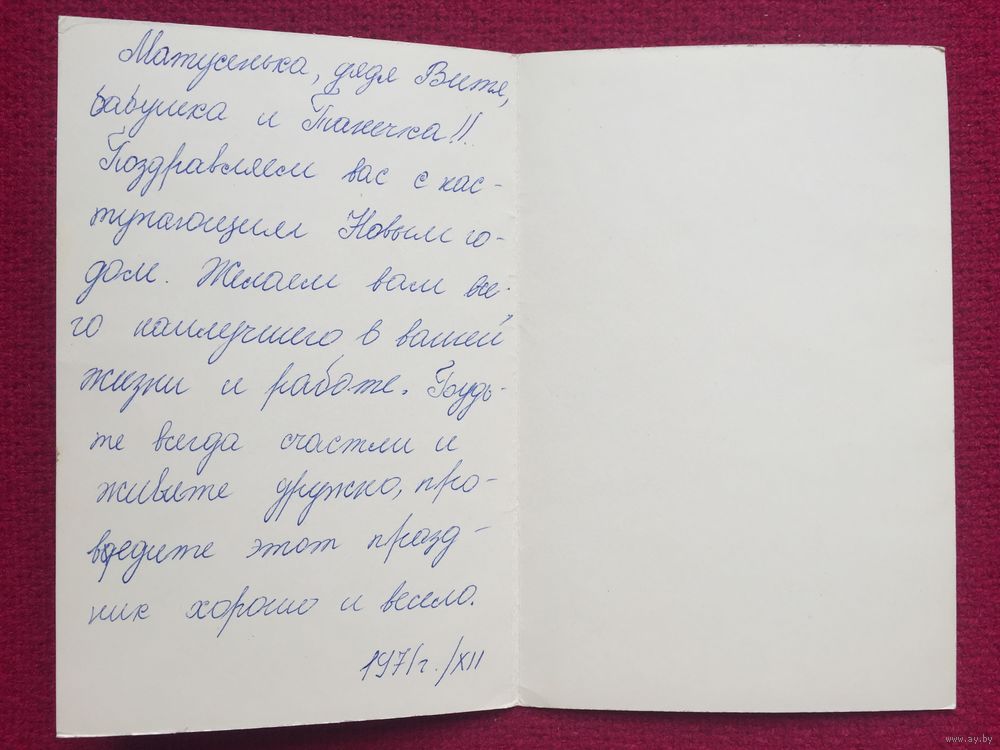 Матусенька, дядя Витя,
бабушка и Танечка!!
Поздравляем вас с нас-
тупающим Новым го-
дом. Желаем вам все-
го наилучшего в вашей
жизни и работе. Будь-
те всегда счастли и
живите дружно, про-
ведите этот празд-
ник хорошо и весело.
1971г./XII
www.ay.by